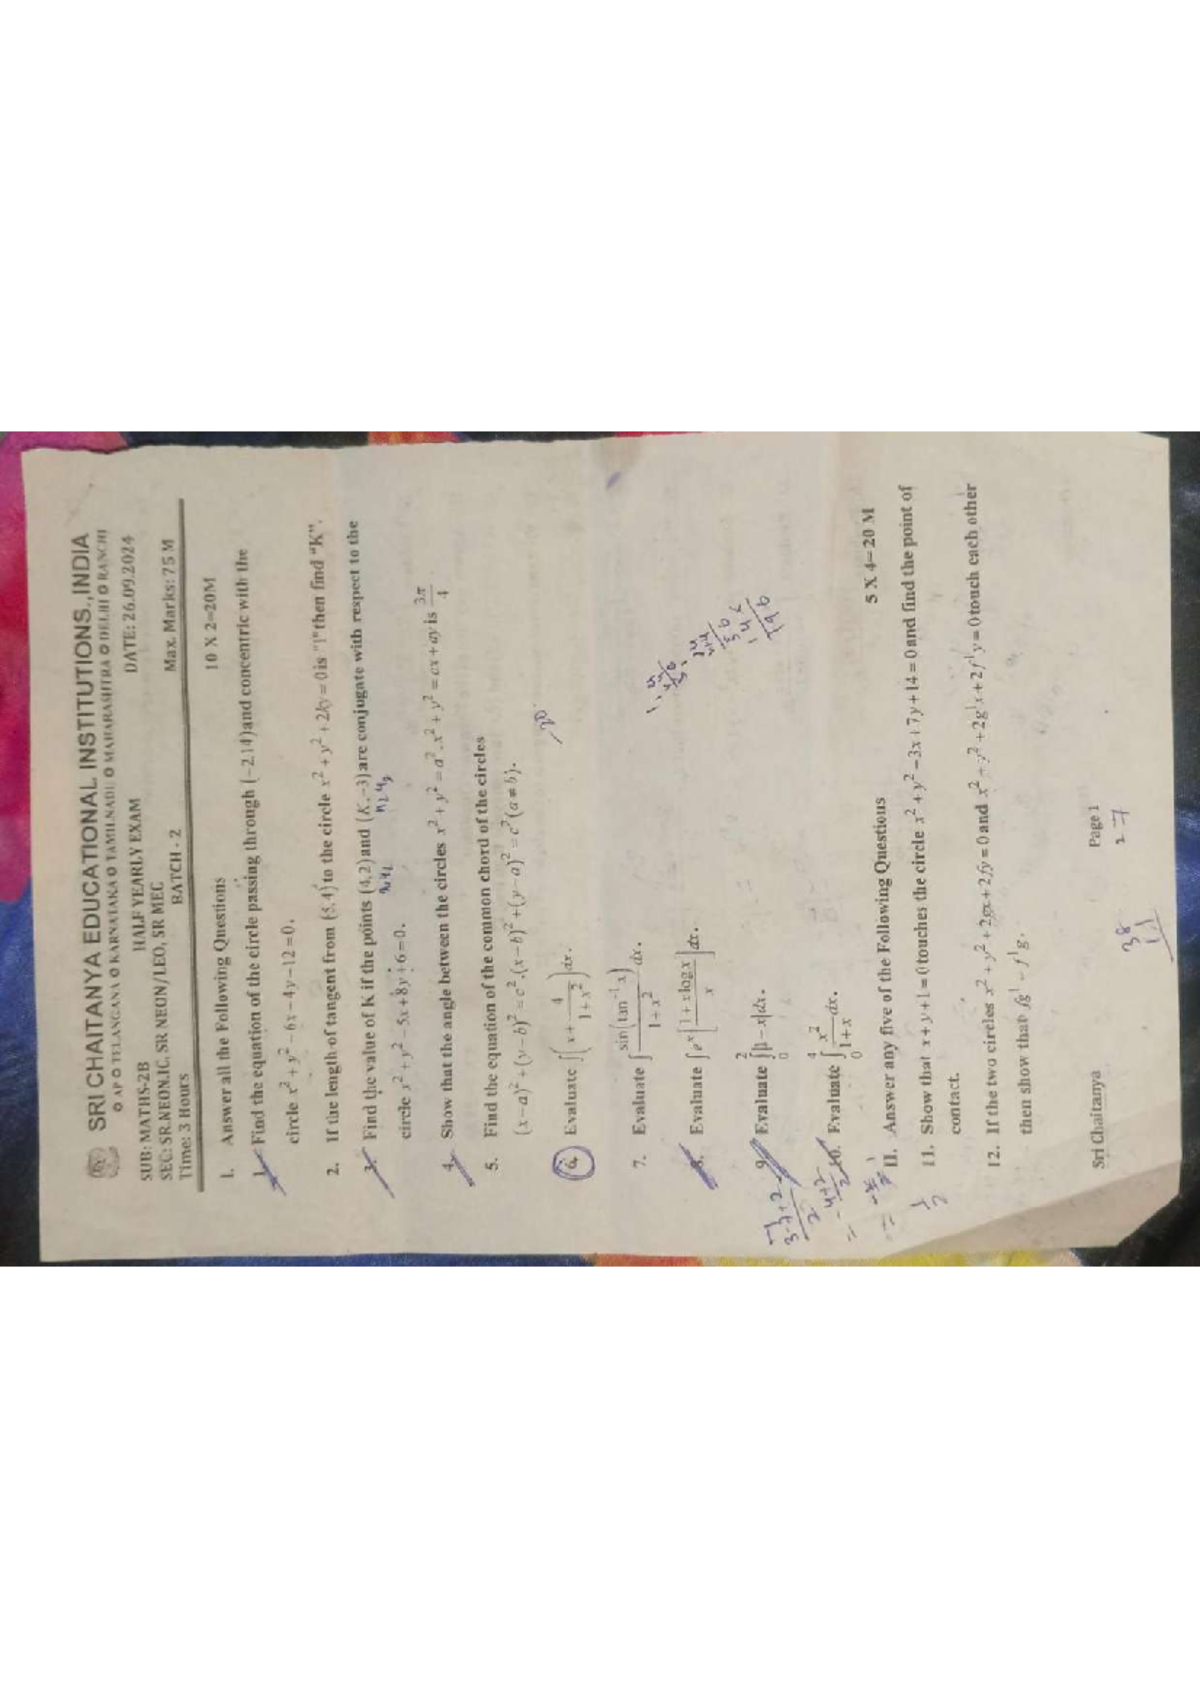 SRI CHAITANYA EDUCATIONAL INSTITUTIONS.,INDIA
AP TELANGANA KARNATAKA TAMILNADU MAHARASHTRA DELHI RANCHI
SUB: MATHS-2B HALF YEARLY EXAM DATE: 26.09.2024
SEC: SR.NEON.IC, SR NEON/LEO, SR MEC
Time: 3 Hours BATCH - 2 Max. Marks: 75 M
10 X 2=20M
I. Answer all the Following Questions
1. Find the equation of the circle passing through (−2,14) and concentric with the
circle x² + y² − 6x − 4y − 12 = 0.
2. If the length of tangent from (5,4) to the circle x² + y² + 2ky = 0 is "1" then find "K".
3. Find the value of K if the points (4,2) and (K,−3) are conjugate with respect to the
circle x² + y² − 5x + 8y + 6 = 0.
4. Show that the angle between the circles x² + y² = a², x² + y² = ax + ay is 3π/4
5. Find the equation of the common chord of the circles
(x−a)² + (y−b)² = c², (x−b)² + (y−a)² = c² (a ≠ b).
6. Evaluate ∫(x + 4/(1+x²))dx.
7. Evaluate ∫ sin(tan⁻¹ x)/(1+x²) dx.
8. Evaluate ∫eˣ[(1+x log x)/x]dx.
9. Evaluate ∫₀² |1−x|dx.
10. Evaluate ∫₀⁴ x²/(1+x) dx.
II. Answer any five of the Following Questions 5 X 4=20 M
11. Show that x + y + 1 = 0 touches the circle x² + y² − 3x + 7y + 14 = 0 and find the point of
contact.
12. If the two circles x² + y² + 2gx + 2fy = 0 and x² + y² + 2g¹x + 2f¹y = 0 touch each other
then show that fg¹ = f¹g.
Sri Chaitanya Page 1
27
38